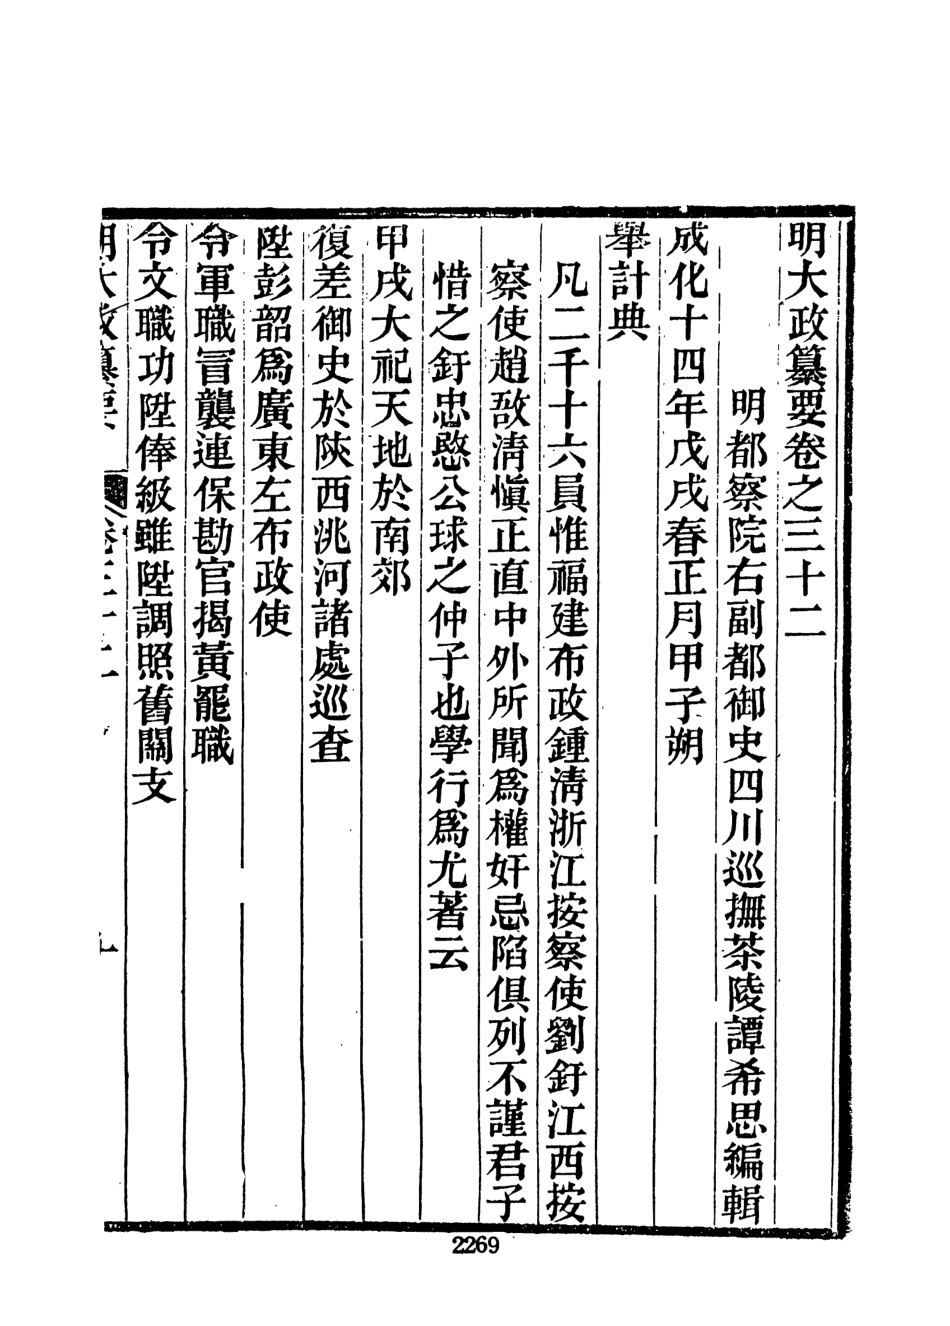 明大政纂要卷之三十二
明都察院右副都御史四川巡撫茶陵譚希思編輯
成化十四年戊戌春正月甲子朔
舉計典
凡二千十六員惟福建布政鍾清浙江按察使劉釪江西按
察使趙敔清慎正直中外所聞爲權奸忌陷俱列不謹君子
惜之釪忠愍公球之仲子也學行爲尤著云
甲戌大祀天地於南郊
復差御史於陝西洮河諸處巡查
陞彭韶爲廣東左布政使
令軍職冒襲連保勘官揭黃罷職
令文職功陞俸級雖陞調照舊關支
明大政纂要
卷三十二
2269